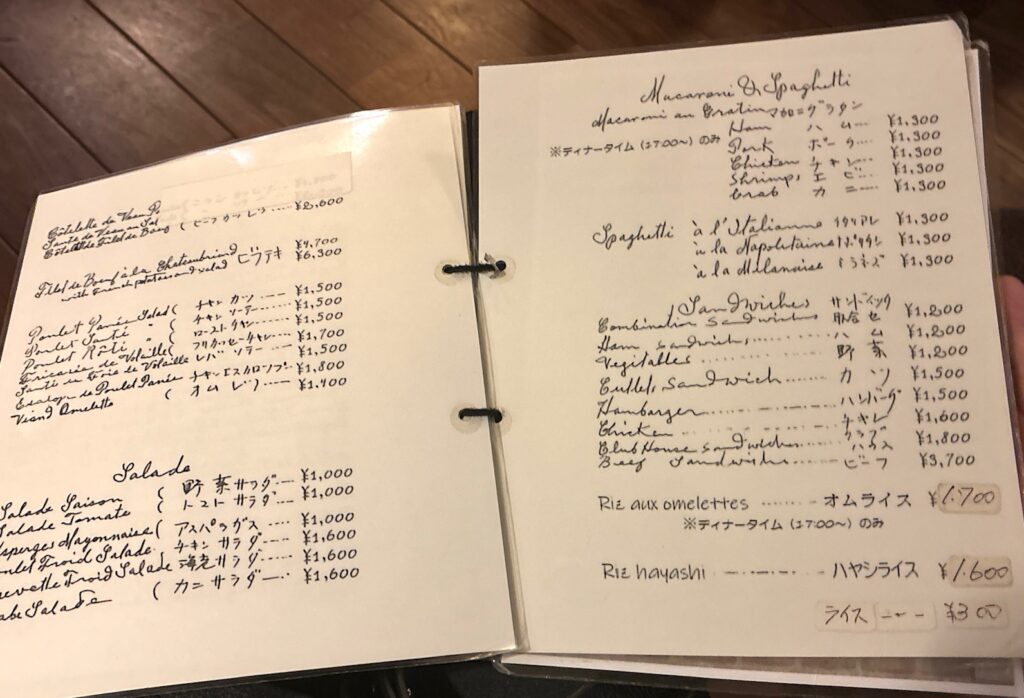 Côtelette de Veau
Sauté de Veau au
Côtelette Filet de Boeuf ( ビーフカツレツ ..... ¥2,600
Filet de Boeuf à la Chateaubriand ¥4,700
with french potatoes and salad ビフテキ ¥6,300
Poulet Panée Salad ( チキンカツ ---- ¥1,500
Poulet Sauté " ( チキンソテー ---- ¥1,500
Poulet Rôti " ( ローストチキン ---- ¥1,500
Fricarie de Volaille ( フリカッセーチキン.. ¥1,700
Sauté en foie de Volaille レバソテー ---- ¥1,500
Escalop de Poulet Panée チキンエスカロップ ¥1,800
Viand Omelette ( オムレツ .... ¥1,400
Salade
Salade Saison ( 野菜サラダ --- ¥1,000
Salade Tomate ( トマトサラダ --- ¥1,000
Asperges Mayonnaise ( アスパラガス .... ¥1,000
Poulet Froid Salade ( チキンサラダ--- ¥1,600
Crevette Froid Salade 海老サラダ--- ¥1,600
Crabe Salade ( カニサラダ--- ¥1,600
Macaroni & Spaghetti
Macaroni au Gratin マカロニグラタン
※ディナータイム (17:00〜) のみ
Ham ハム --- ¥1,300
Pork ポーク --- ¥1,300
Chicken チキン --- ¥1,300
Shrimps エビ --- ¥1,300
Crab カニ --- ¥1,300
Spaghetti à l'Italianne イタリアン ¥1,300
à la Napolitaine ナポリタン ¥1,300
à la Milanaise ミラネズ ¥1,300
Sandwiches サンドイッチ
Combination Sandwiches 盛合せ ¥1,200
Ham sandwichs ...... ハム ¥1,200
Vegitables 野菜 ¥1,200
Cutlets sandwich ....... カツ ¥1,500
Hamburger ---------- ハンバーグ ¥1,500
Chicken ---------- チキン ¥1,600
Club House sandwiches .... クラブハウス ¥1,800
Beef Sandwichs ....... ビーフ ¥3,700
Riz aux omelettes ....... オムライス ¥1.700
※ディナータイム (17:00〜) のみ
Riz hayashi ---------- ハヤシライス ¥1.600
ライス --- ¥300